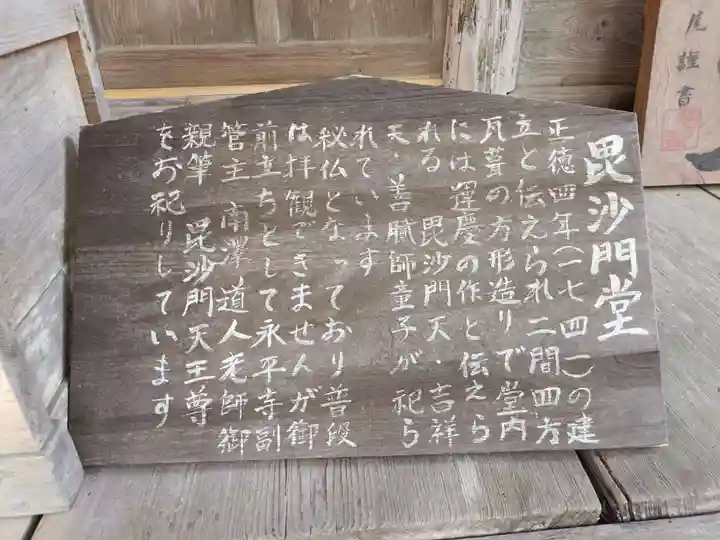 毘沙門堂
正徳四年(一七四一)の建
立と伝えられ二間四方
瓦葺の方形造りで堂内
には運慶の作と伝えら
れる 毘沙門天・吉祥
天・善膩師童子が祀ら
れています
秘仏となっており普段
は拝観できませんが御
前立ちとして永平寺副
管主 南澤道人老師御
親筆 毘沙門天王尊
をお祀りしています
尾謹書